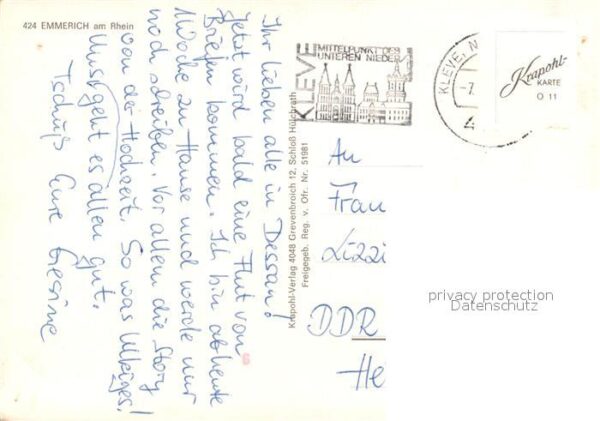 424 EMMERICH am Rhein
Ihr Lieben alle in Dessau!
Jetzt wird bald eine Flut von
Briefen kommen. Ich bin ab heute
Woche zu Hause und werde nur
noch schreiben. Vor allem die Story
von der Hochzeit. So was Ulkiges!
Uns geht es allen gut.
Tschüß Eure Gesine
Krapohl-Verlag 4048 Grevenbroich 12, Schloß Hülchrath
Freigegeb. Reg. v. Ofr. Nr. 51981
KLEVE
MITTELPUNKT DES
UNTEREN NIEDER
KLEVE, N
-7.
4.
Krapohl-
KARTE
O 11
An
Frau
Lizzi
DDR
He
privacy protection
Datenschutz